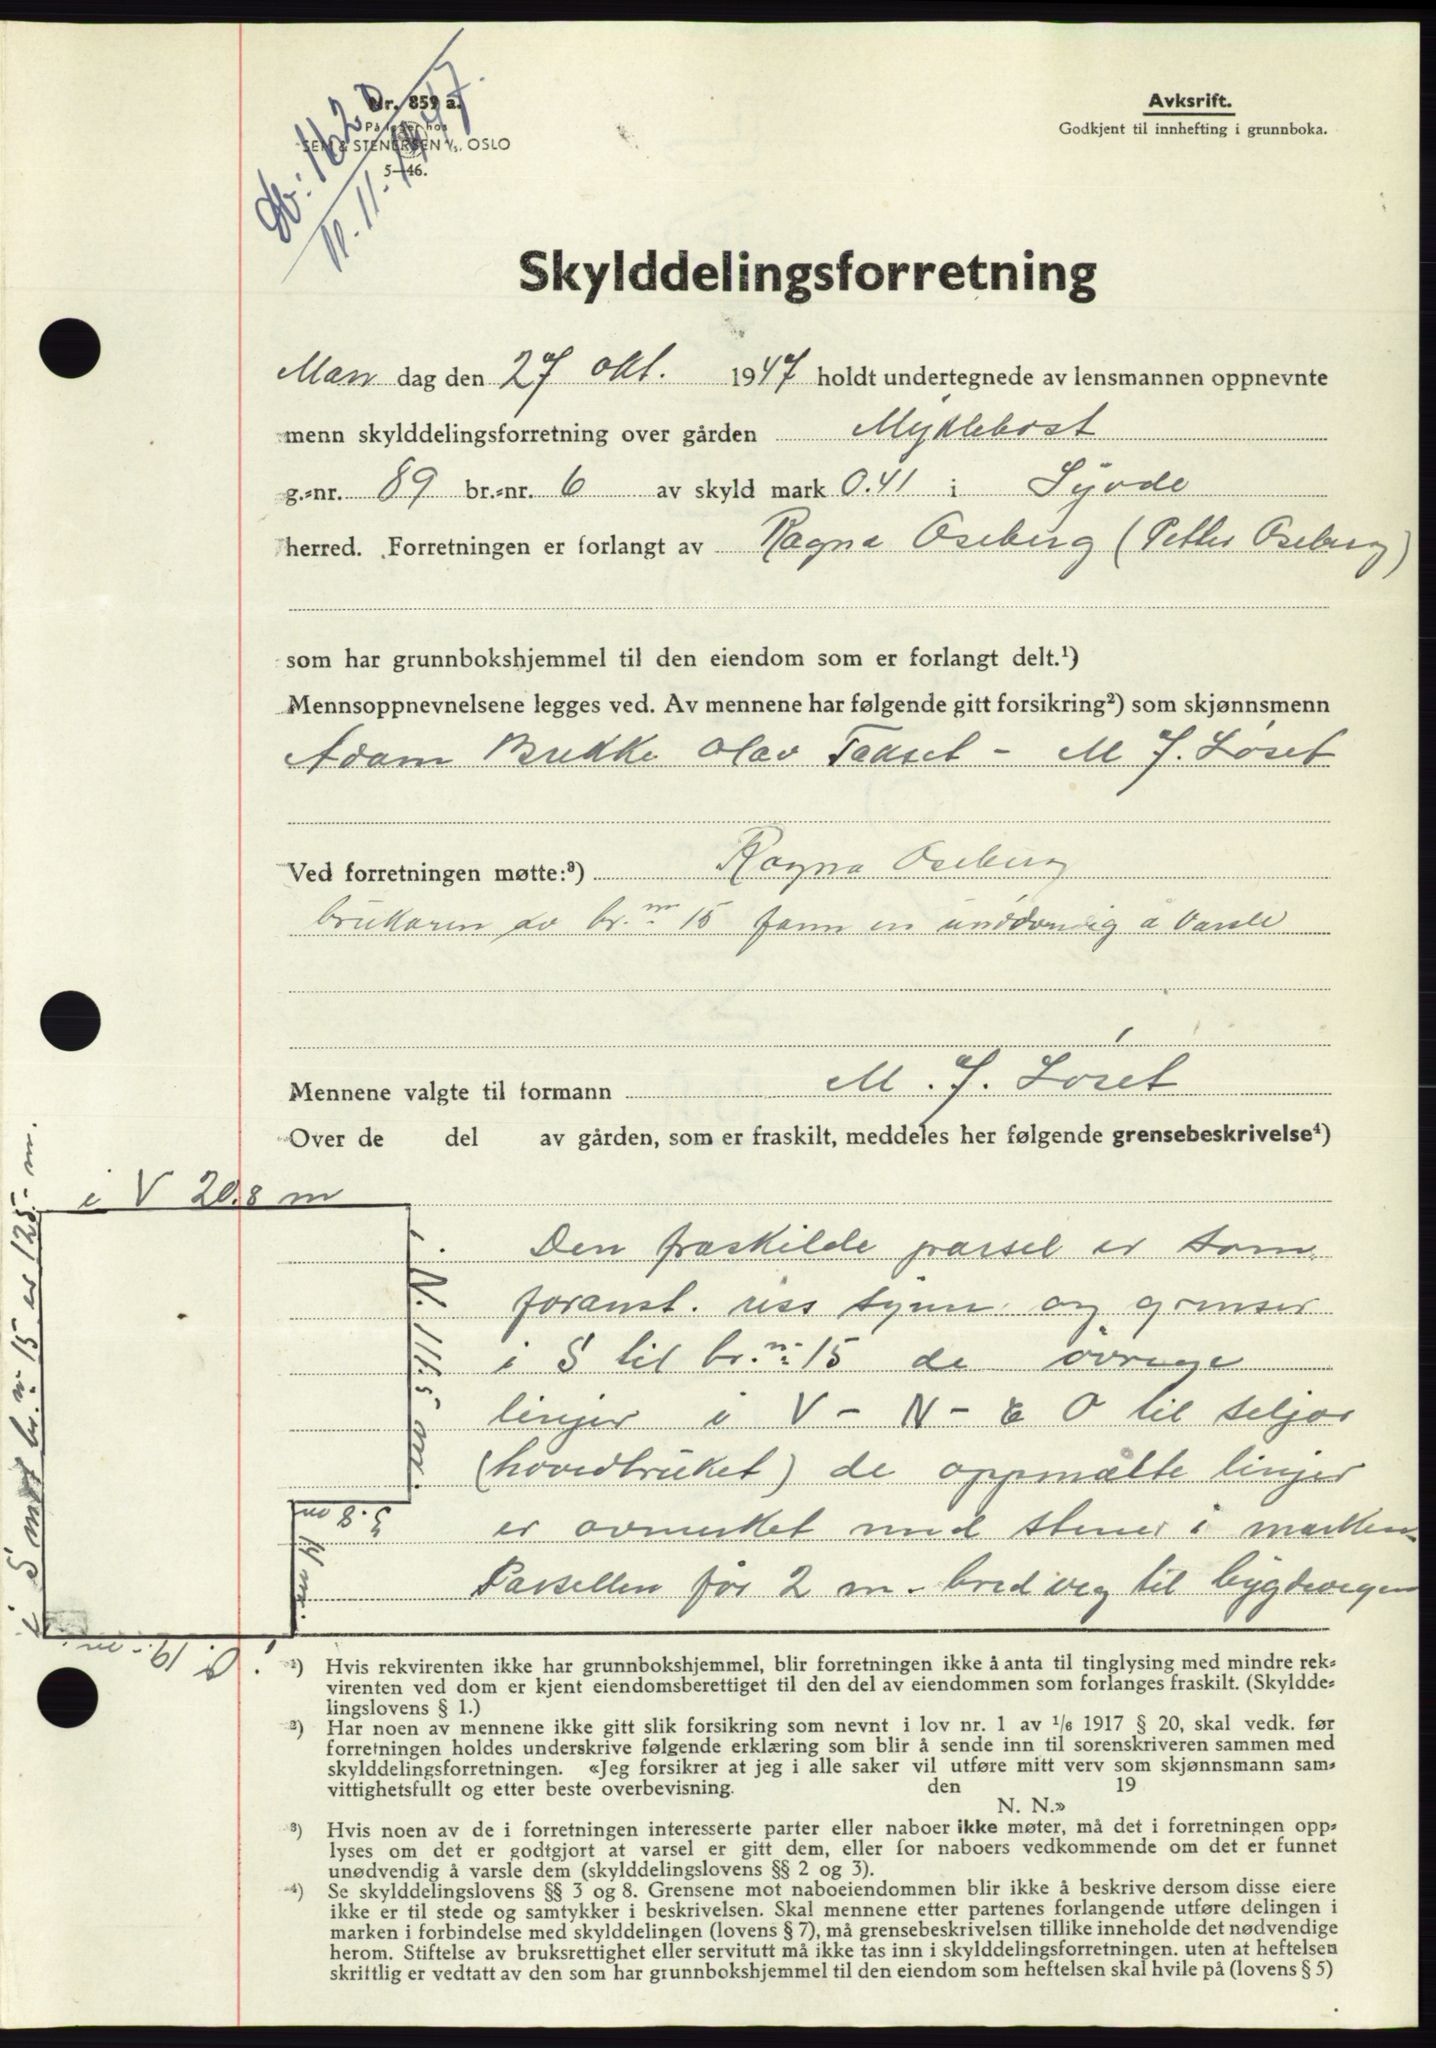 Db: 1620
11.11.1947.
Nr. 859 a.
På lager hos
SEM & STENERSEN A/S, OSLO
5—46.
Avksrift.
Godkjent til innhefting i grunnboka.
Skylddelingsforretning
Man dag den 27 okt. 1947 holdt undertegnede av lensmannen oppnevnte
menn skylddelingsforretning over gården Myklebost
g.=nr. 89 br.=nr. 6 av skyld mark 0.41 i Syvde
herred. Forretningen er forlangt av Ragna Oseberg (Petter Oseberg)
som har grunnbokshjemmel til den eiendom som er forlangt delt.¹)
Mennsoppnevnelsene legges ved. Av mennene har følgende gitt forsikring²) som skjønnsmenn
Adam Brekke Olav Takset – M J. Løset
Ved forretningen møtte:³) Ragna Oseberg
brukaren av br. nr. 15 fann en unødvendig å varsle
Mennene valgte til formann M. J. Løset
Over de del av gården, som er fraskilt, meddeles her følgende grensebeskrivelse⁴)
i V 20.8 m
i S mot br. nr 15 er 125.- m.
N. 111.5 m.
3.8 m
14 m.
Ø. 19.- m.
Den fraskilde parsel er som
foranst. riss synn og grenser
i S til br. nr. 15 de øvrege
linjer i V – N – E O til seljar
(hovedbruket) de oppmålte linjer
er avmerket med stener i marken.
Parsellen før 2 m. bred veg til bygdevegen
¹) Hvis rekvirenten ikke har grunnbokshjemmel, blir forretningen ikke å anta til tinglysing med mindre rek=
virenten ved dom er kjent eiendomsberettiget til den del av eiendommen som forlanges fraskilt. (Skyldde=
lingslovens § 1.)
²) Har noen av mennene ikke gitt slik forsikring som nevnt i lov nr. 1 av 1/6 1917 § 20, skal vedk. før
forretningen holdes underskrive følgende erklæring som blir å sende inn til sorenskriveren sammen med
skylddelingsforretningen. «Jeg forsikrer at jeg i alle saker vil utføre mitt verv som skjønnsmann sam=
vittighetsfullt og etter beste overbevisning. den 19
N. N.»
³) Hvis noen av de i forretningen interesserte parter eller naboer ikke møter, må det i forretningen opp=
lyses om det er godtgjort at varsel er gitt dem, eller for naboers vedkommende om det er funnet
unødvendig å varsle dem (skylddelingslovens §§ 2 og 3).
⁴) Se skylddelingslovens §§ 3 og 8. Grensene mot naboeiendommen blir ikke å beskrive dersom disse eiere
ikke er til stede og samtykker i beskrivelsen. Skal mennene etter partenes forlangende utføre delingen i
marken i forbindelse med skylddelingen (lovens § 7), må grensebeskrivelsen tillike inneholde det nødvendige
herom. Stiftelse av bruksrettighet eller servitutt må ikke tas inn i skylddelingsforretningen. uten at heftelsen
skriftlig er vedtatt av den som har grunnbokshjemmel til den eiendom som heftelsen skal hvile på (lovens § 5)